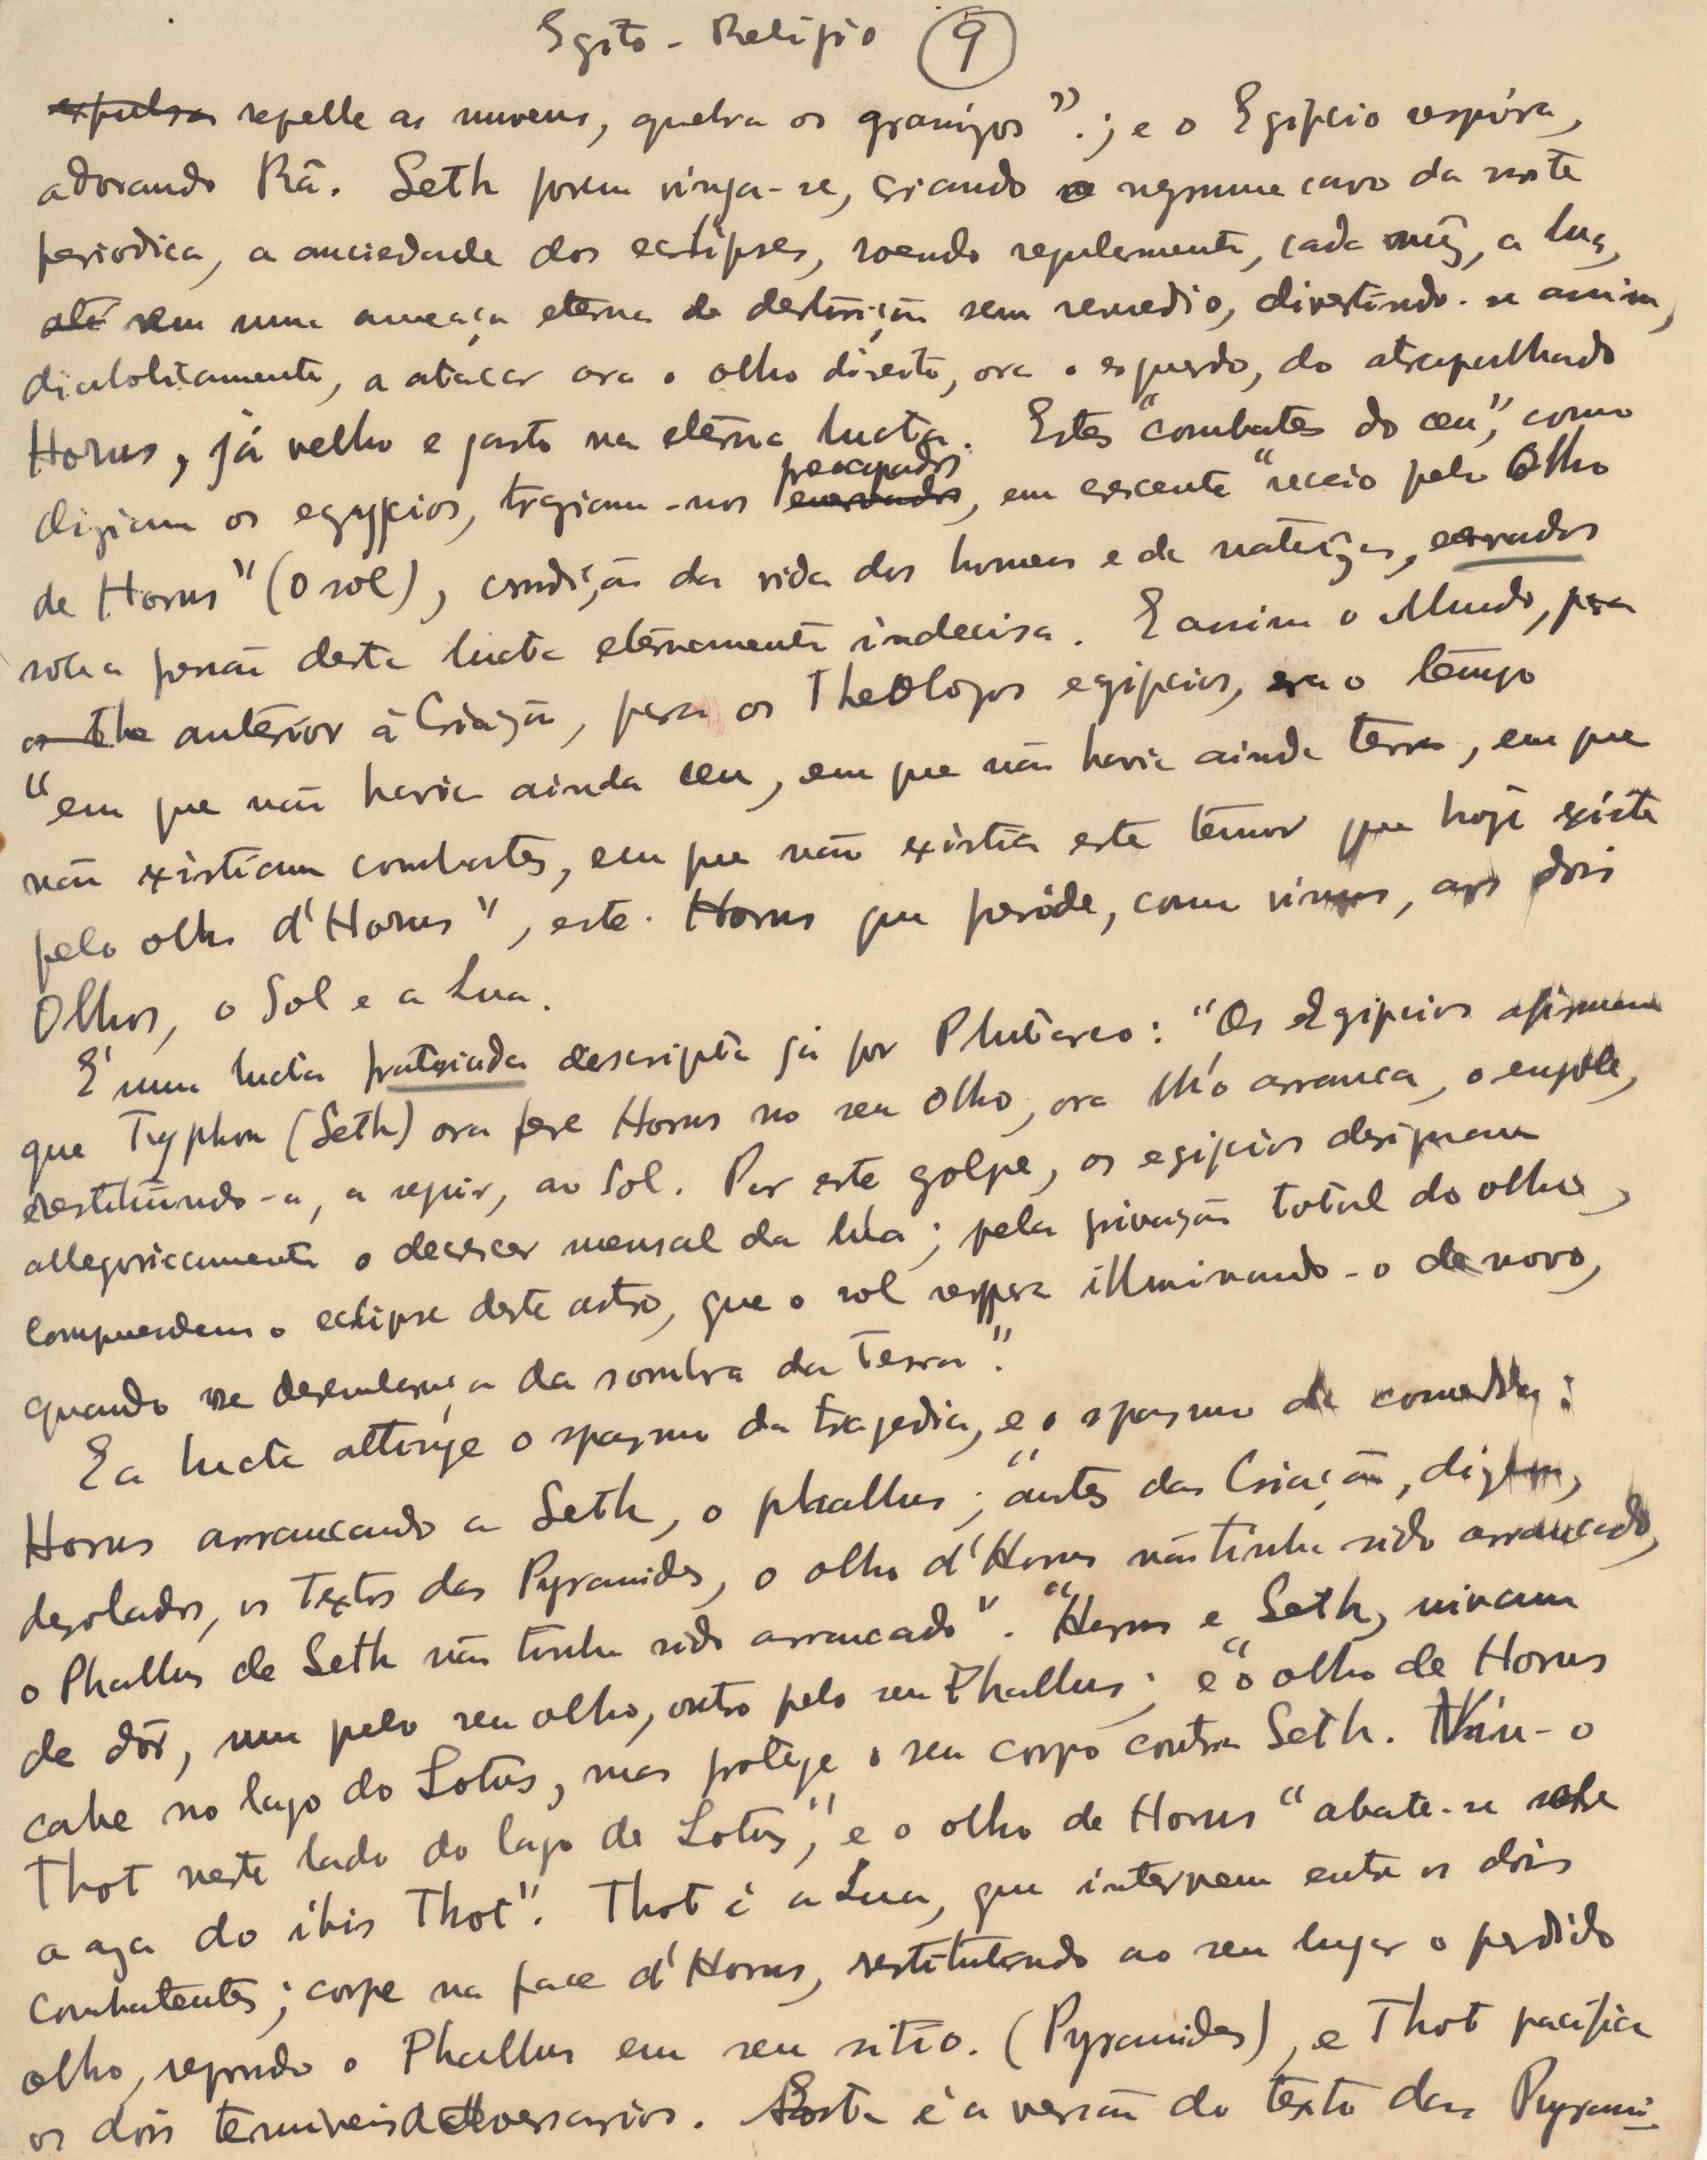 Egito - Religião 9
expulsa repelle as nuvens, quebra os granizos".; e o Egipcio respira,
adorando Râ. Seth porem vinga-se, criando o negrume cavo da noite
periodica, a anciedade dos eclipses, roendo regularmente, cada mêz, a lua,
até em uma ameaça eterna de destruição sem remedio, divertindo-se assim,
diabolicamente, a atacar ora o olho direito, ora o esquerdo, do atrapalhado
Horus, já velho e gasto na eterna lucta. Estes "combates do ceu", como
diziam os egypcios, traziam-nos preocupados
enervados, em crescente "receio pelo Olho
de Horus" (o sol), condição da vida dos homens e da natureza, enervados
sob a pressão desta lucta eternamente indecisa. E assim o Mundo, pra
os The anterior á Criação, para os Theologos egipcios, era o tempo
"em que não havia ainda ceu, em que não havia ainda terra, em que
não existiam combates, em que não existia este temor que hoje existe
pelo olho d'Horus", este Horus que perde, como vimos, os dois
Olhos, o Sol e a Lua.
É uma lucta fratricida descripta já por Plutarco: "Os Egipcios afirmam
que Typhon (Seth) ora fere Horus no seu Olho, ora lh'o arranca, o engole,
restituindo-a, a seguir, ao Sol. Por este golpe, os egipcios designam
allegoricamente o decrescer mensal da lua; pela privação total do olho,
comprendem o eclipse deste astro, que o sol repara illuminando-o de novo,
quando se desembaraça da sombra da Terra".
E a lucta attinge o spasmo da tragedia, e o spasmo da comedia:
Horus arrancando a Seth, o phallus; "antes da Criação, dizem,
desolados, os Textos das Pyramides, o olho d'Horus não tinha sido arrancado,
o Phallus de Seth não tinha sido arrancado". "Horus e Seth, uivam
de dôr, um pelo seu olho, outro pelo seu Phallus; e "o olho de Horus
cahe no lago do Lotus, mas protege o seu corpo contra Seth. Viu-o
Thot neste lado do lago de Lotus", e o olho de Horus "abate-se sobre
a aza do ibis Thot". Thot é a Lua, que intervem entre os dois
combatentes; cospe na face d'Horus, restituindo ao seu lugar o perdido
olho, repondo o Phallus em seu sitio. (Pyramides), e Thot pacifica
os dois terriveis adversarios. Esta é a versão do texto das Pyrami-